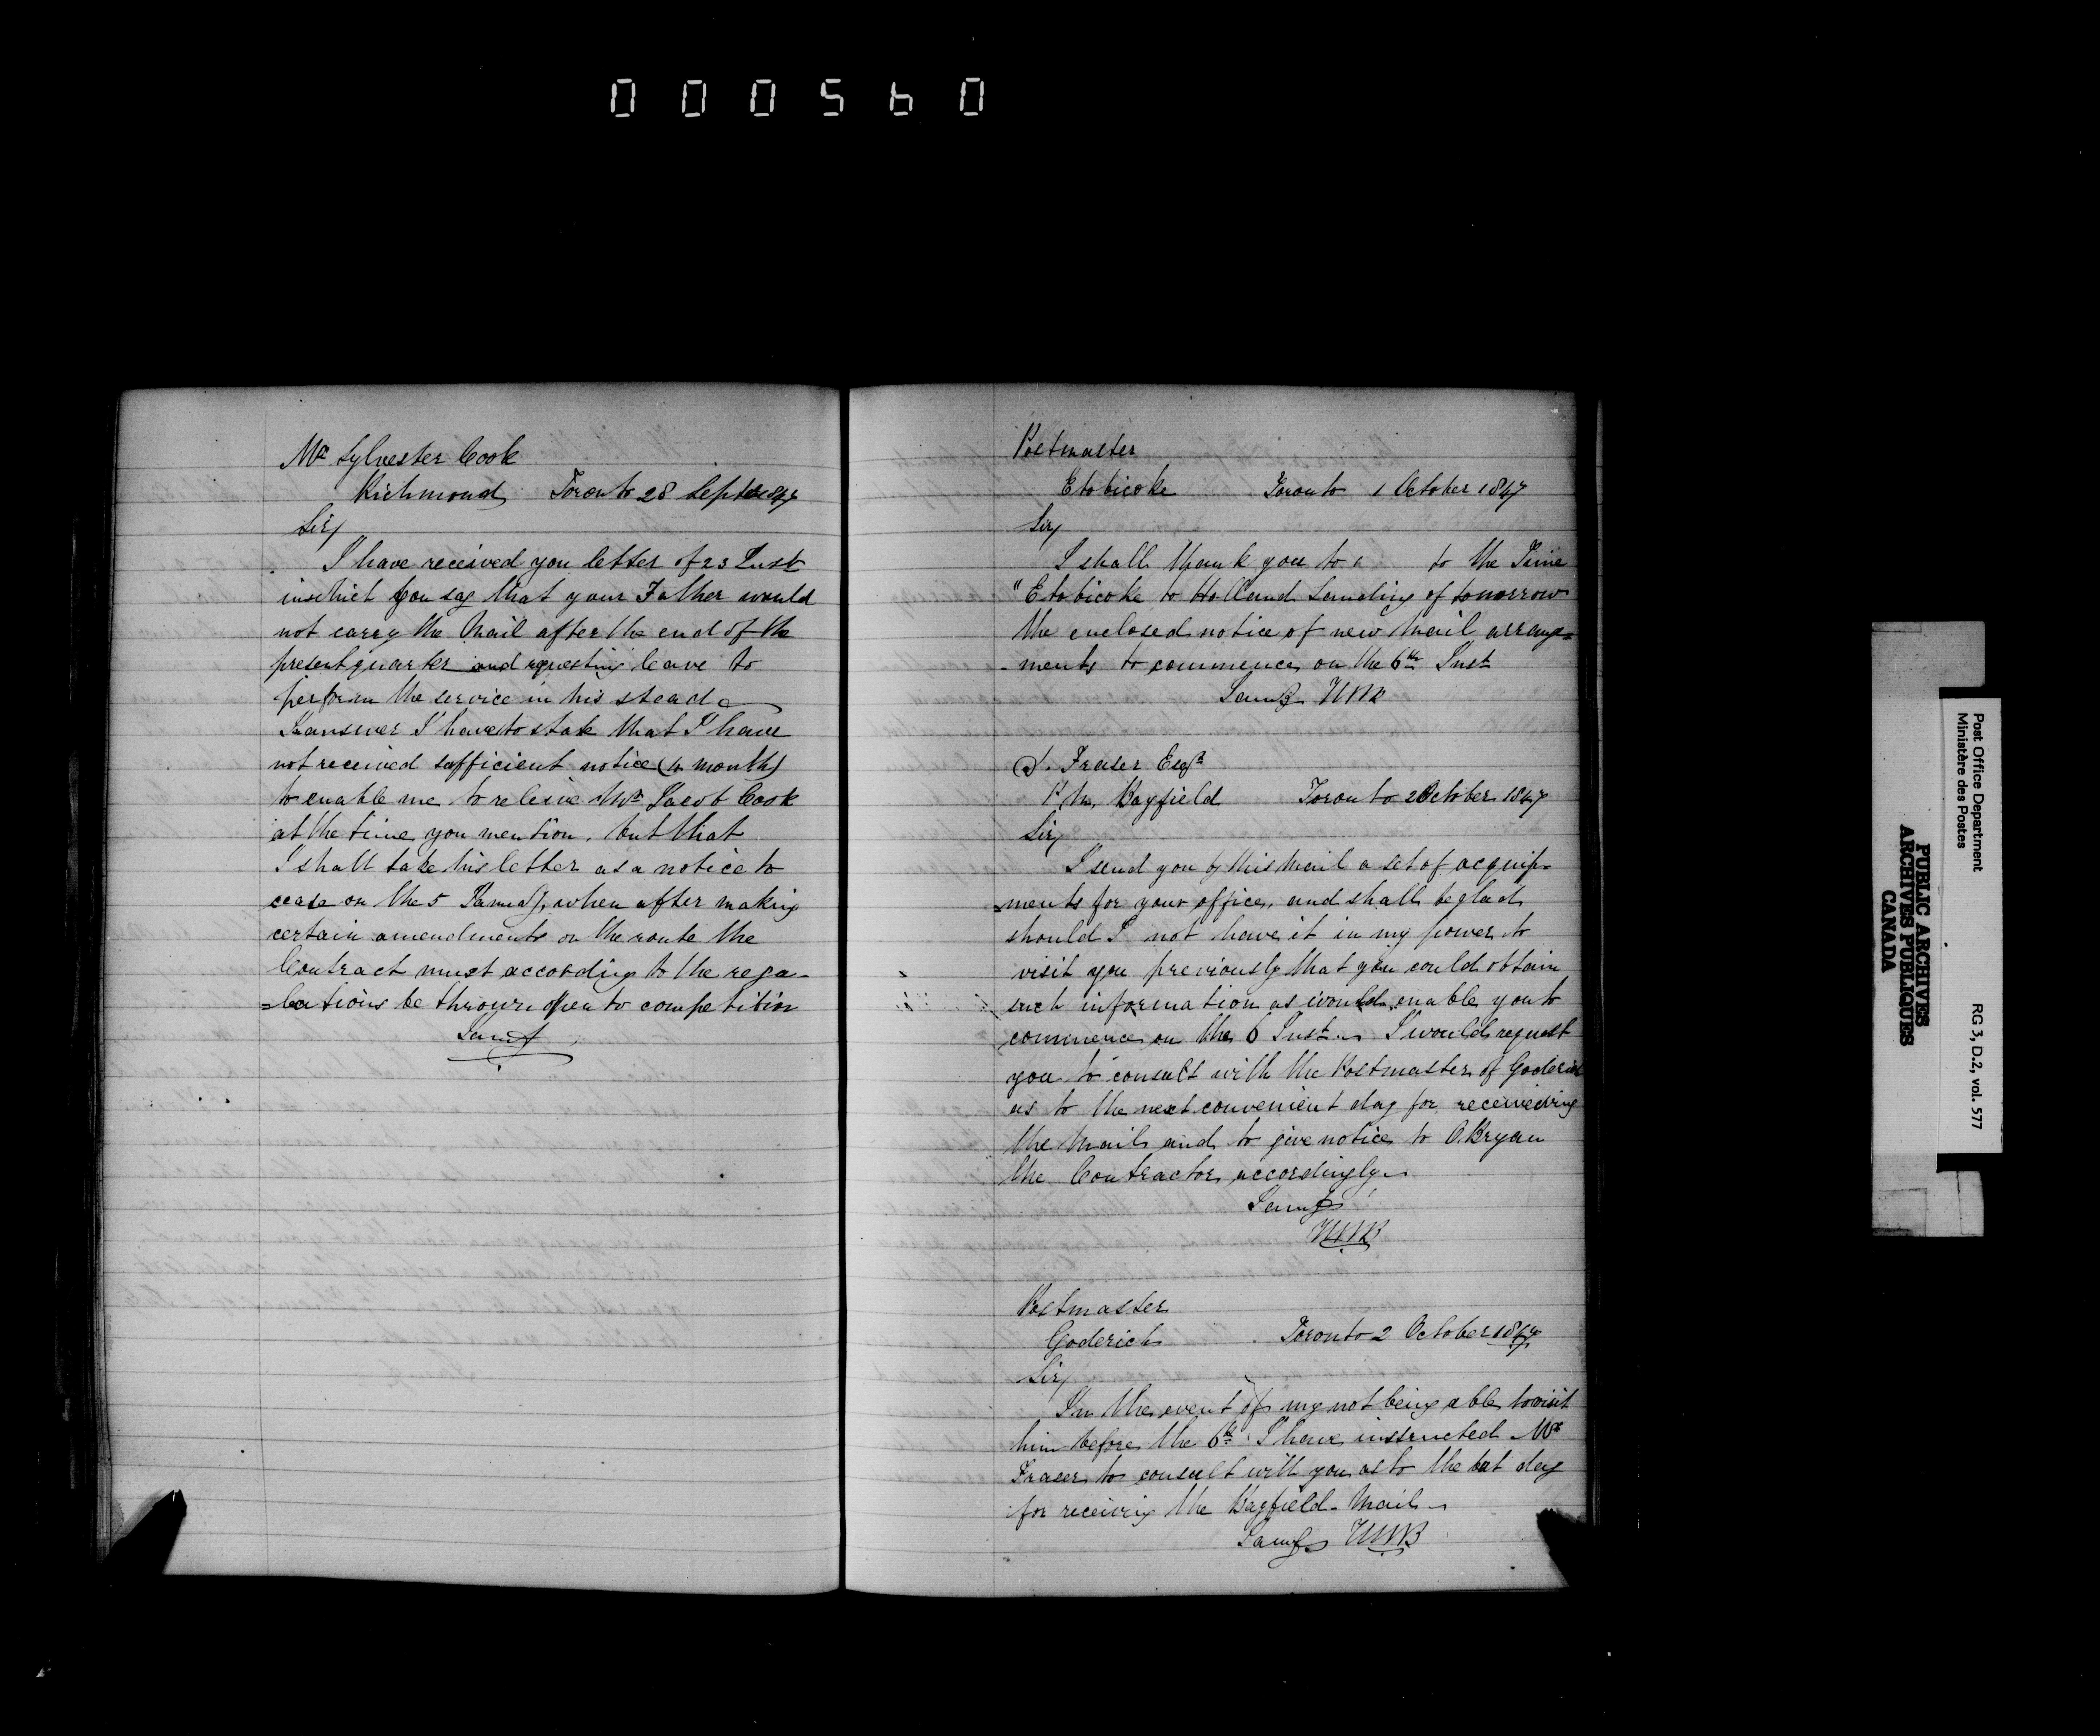 000560
Mr Sylvester Cook
Richmond Toronto 28 Septr 1847
Sir
I have received you letter of 23 Inst
in which you say that your Father would
not carry the Mail after the end of the
present quarter and requesting leave to
perform the service in his stead
In answer I have to state that I have
not received sufficient notice (4 month)
to enable me to releive Mr Jacob Cook
at the time you mention, but that
I shall take his letter as a notice to
cease on the 5 when after making
certain amendments on the route the
Contract must according to the regu-
=lations be thrown open to competition
Postmaster
Etobicoke Toronto 1 October 1847
Sir
I shall thank you to to the
"Etobicoke to Holland Landing of tomorrow
the enclosed notice of new Mail arrange=
-ments to commence on the 6th Inst
Fraser Esqr
P.M. Bayfield Toronto 2 October 1847
Sir
I send you by this Mail a set of acquip-
=ments for your office, and shall be glad
should I not have it in my power to
visit you previously that you could obtain
such information as would enable you to
commence on the 6 Inst I would request
you to consult with the Postmaster of Goderich
as to the next convenient day for receiveing
the Mail and to give notice to O.Bryan
the Contractor accordingly
Postmaster
Goderich Toronto 2 October 1847
Sir
In the event of my not being able to visit
him before the 6th I have instructed Mr
Fraser to consult with you as to the day
for receiving the Bayfield Mail
Post Office Department
Ministère des Postes
RG 3, D.2, vol. 577
PUBLIC ARCHIVES
ARCHIVES PUBLIQUES
CANADA